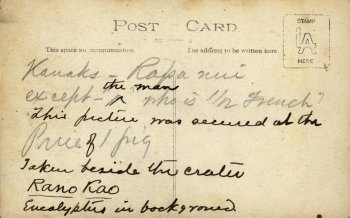 POST CARD
This space for communication
The address to be written here
STAMP
HERE
Kanaks - Rapa nui
the man
except - ^ who is "1/2 French"
This picture was secured at the
Price of 1 pig
Taken beside the crater
Rano Kao
Eucalyptus in background